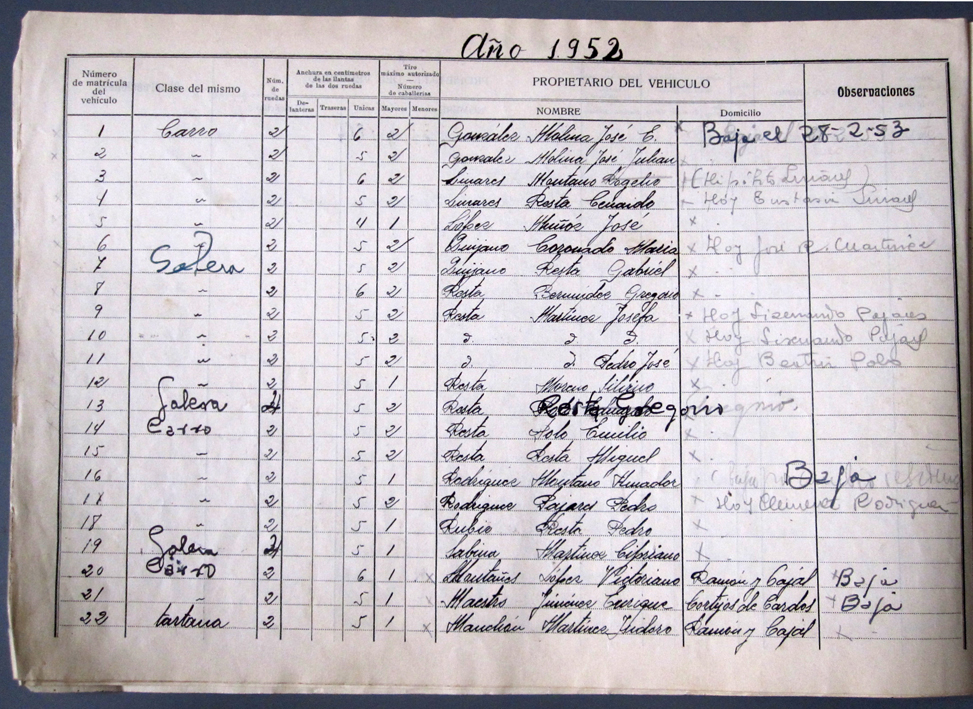 Año 1952
Número de matrícula del vehículo
Clase del mismo
Núm. de ruedas
Anchura en centímetros de las llantas de las dos ruedas
Delanteras Traseras Unicas
Tiro máximo autorizado — Número de caballerías
Mayores Menores
PROPIETARIO DEL VEHICULO
NOMBRE Domicilio
Observaciones
1 Carro 2 6 2 González Molina José E. Baja el 28-2-53
2 " 2 5 2 Gonzalez Molina José Julian
3 " 2 6 2 Linares Montano Rogelio
4 " 2 5 2 Linares Resta Hoy
5 " 2 4 1 López Muñoz José
6 2 5 2 Quijano Coronado Maria Hoy José
7 Galera 2 5 2 Quijano Resta Gabriel
8 " 2 6 2 Resta Bermudez Gregorio
9 " 2 5 2 Resta Martinez Josefa Hoy Sisenando Pajares
10 " 2 5 2 Hoy Sisenando
11 " 2 5 2 Pedro José Hoy
12 " 2 5 1 Resta Moreno
13 Galera 5 2 Resta Gregorio
14 Carro 2 5 2 Resta Solo Emilio
15 " 2 5 2 Resta Resta Miguel
16 " 2 5 1 Rodriguez Montano Amador Baja
17 " 2 5 2 Rodriguez Pajares Pedro Hoy Rodriguez
18 " 2 5 1 Rubio Resta Pedro
19 Galera 5 1 Sabina Martinez Cipriano
20 Carro 2 6 1 Montañes López Victoriano Ramón y Cajal Baja
21 " 2 5 1 Maestro Jiménez Enrique Cortijos de Cardos Baja
22 tartana 2 5 1 Martinez Isidoro Ramón y Cajal